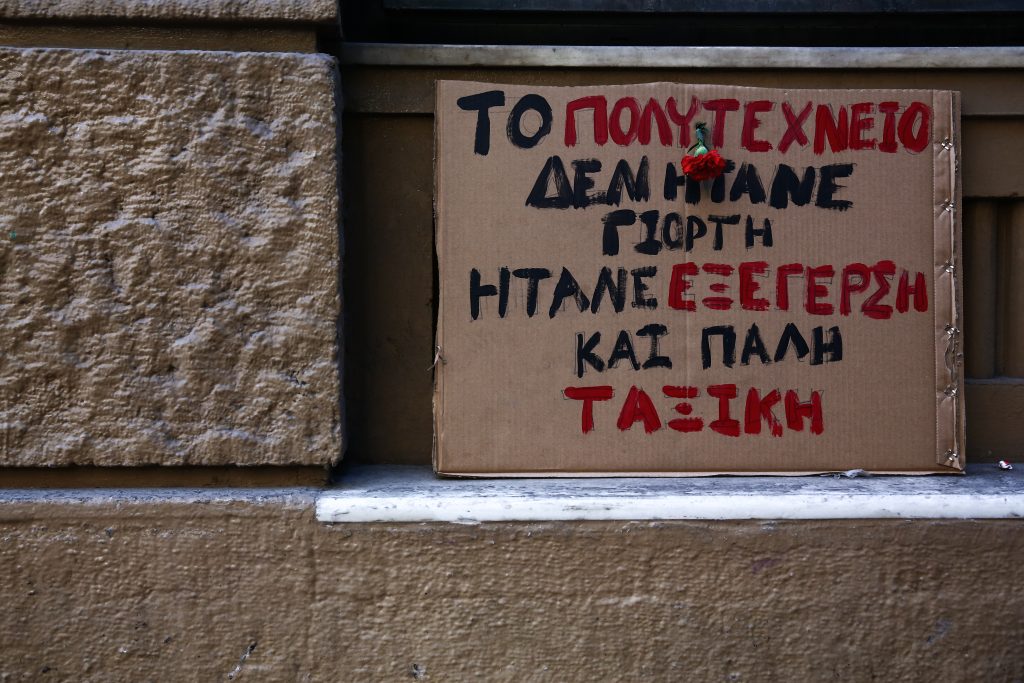 ΤΟ ΠΟΛΥΤΕΧΝΕΙΟ
ΔΕΝ ΗΤΑΝΕ
ΓΙΟΡΤΗ
ΗΤΑΝΕ ΕΞΕΓΕΡΣΗ
ΚΑΙ ΠΑΛΗ
ΤΑΞΙΚΗ